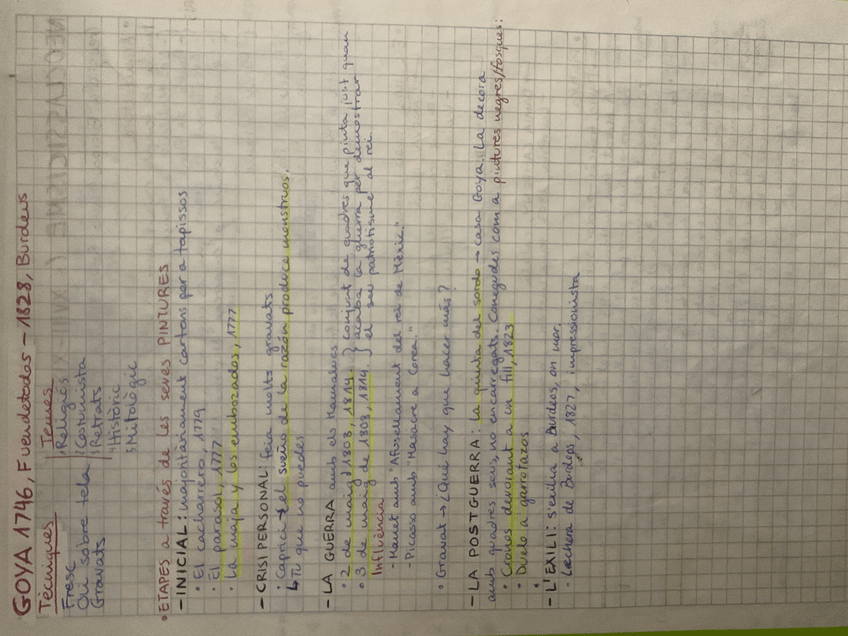 GOYA 1746, Fuendetodos – 1828, Burdeus
Tècniques
Fresc
Oli sobre tela
Gravats
Temes
Religiós
Costumista
Retrats
Històric
Mitològic
• ETAPES a través de les seves PINTURES
– INICIAL: majoritàriament cartons per a tapissos
• El cacharrero, 1779
• El parasol, 1777
• La maja y los embozados, 1777
– CRISI PERSONAL: feia molts gravats
• Caprici → el sueño de la razón produce monstruos.
↳ Tu que no puedes
– LA GUERRA amb els Mamelucs
• 2 de maig 1808, 1814. } conjunt de quadres que pinta just quan
• 3 de maig de 1808, 1814. acaba la guerra per demostrar
el seu patriotisme al rei.
Influència
- Manet amb "Afusellament del rei de Mèxic."
- Picasso amb "Masacre a Corea."
• Gravat → ¿Qué hay que hacer más?
– LA POSTGUERRA: la quinta del sordo → casa Goya. La decora
amb quadres seus, no encarregats. Conegudes com a pintures negres/fosques:
• Cronos devorant a un fill, 1823
• Duelo a garrotazos
•
– L'EXILI: s'exilia a Burdeos, on mor.
• Lechera de Burdeos, 1827, impressionista